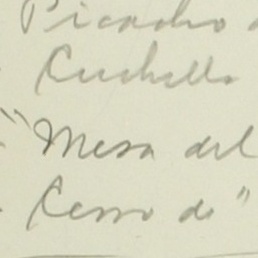 Picacho d
Cuchilla
"Mesa del
Cerro de"